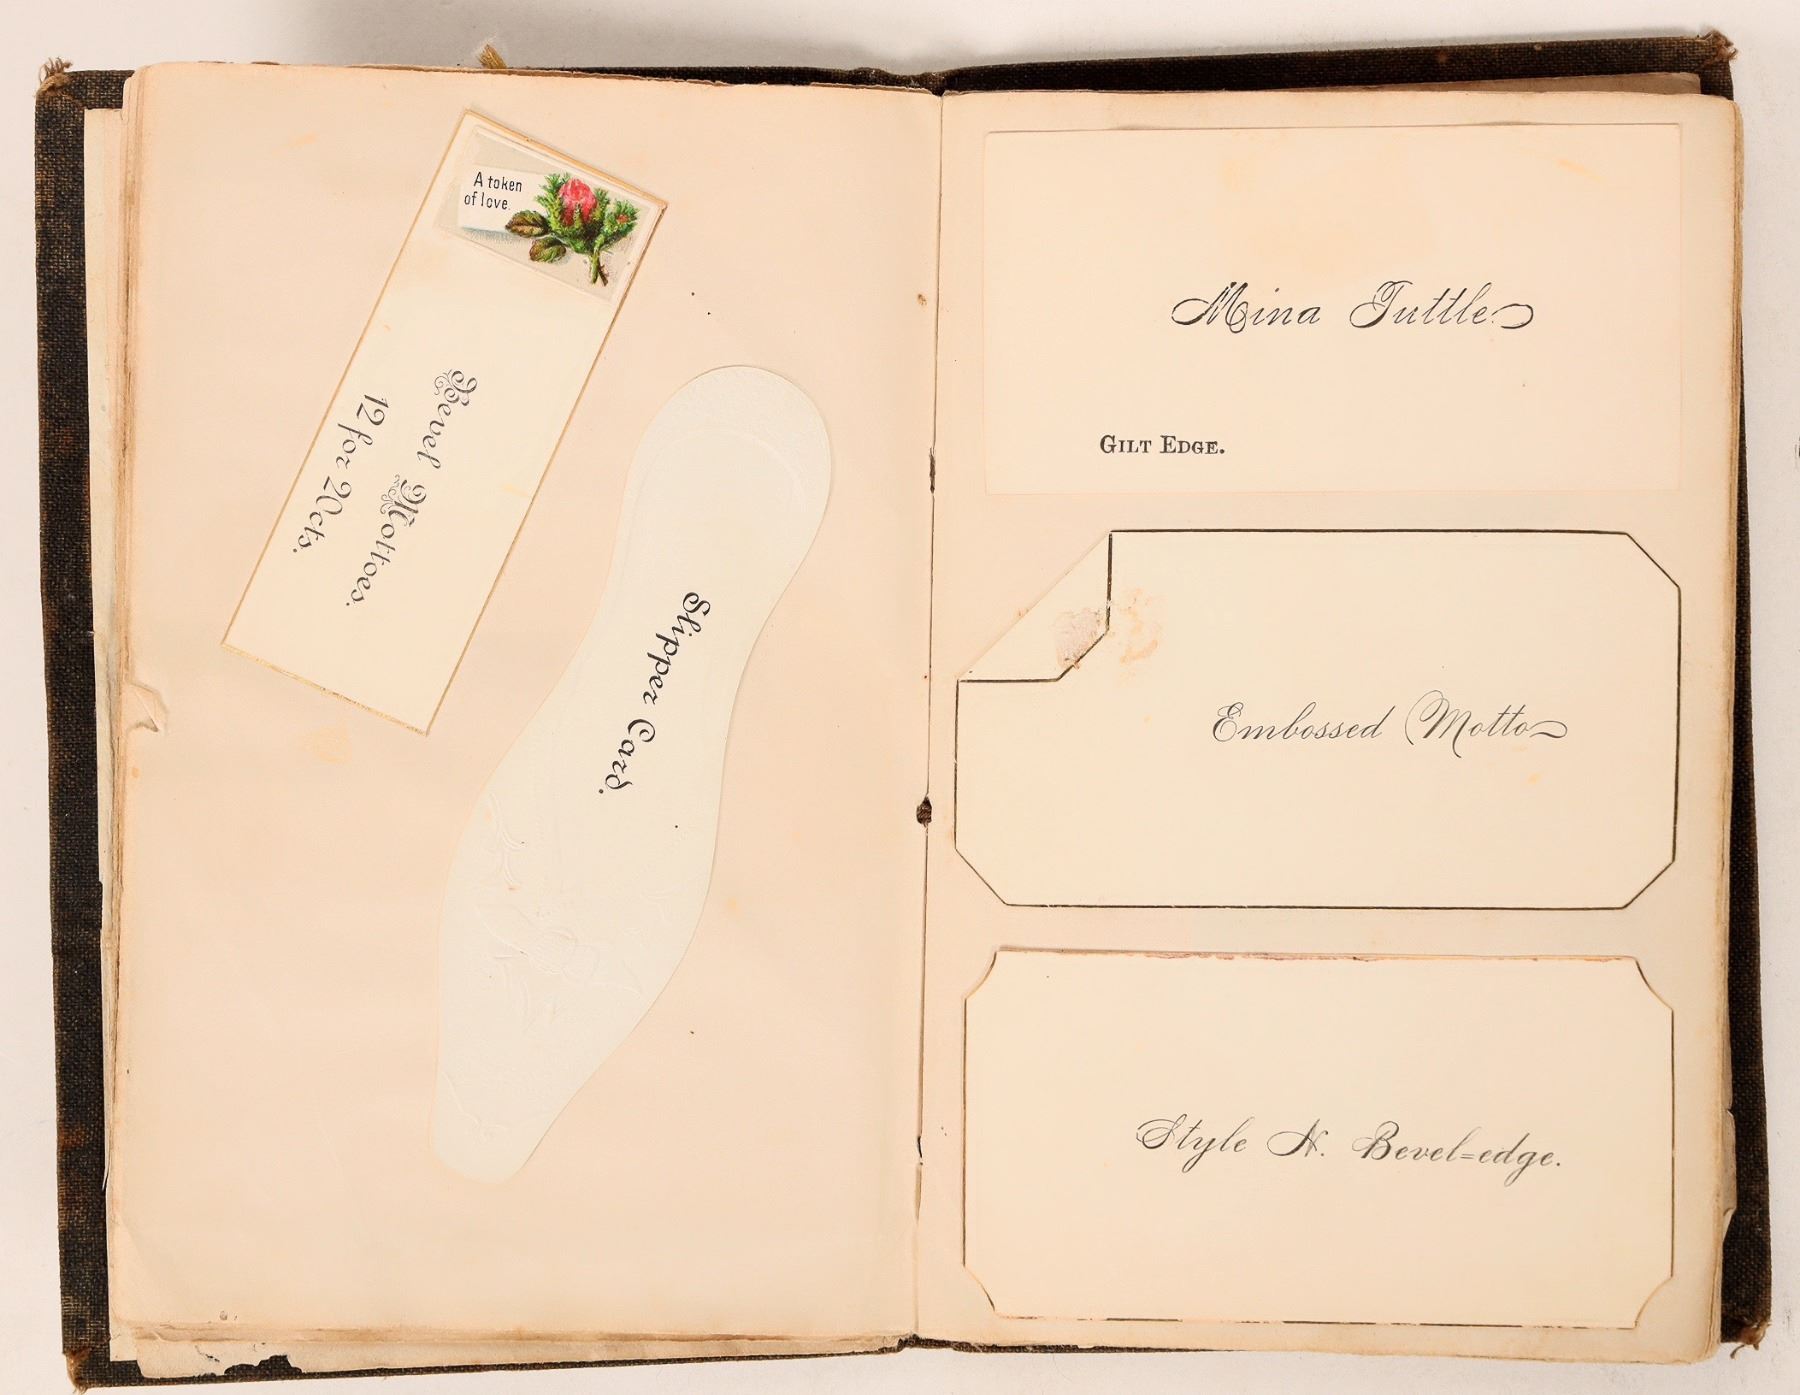 A token
of love.
Bevel Mottoes.
12 for 20cts.
Slipper Card.
Mina Tuttle
GILT EDGE.
Embossed Motto
Style N. Bevel=edge.